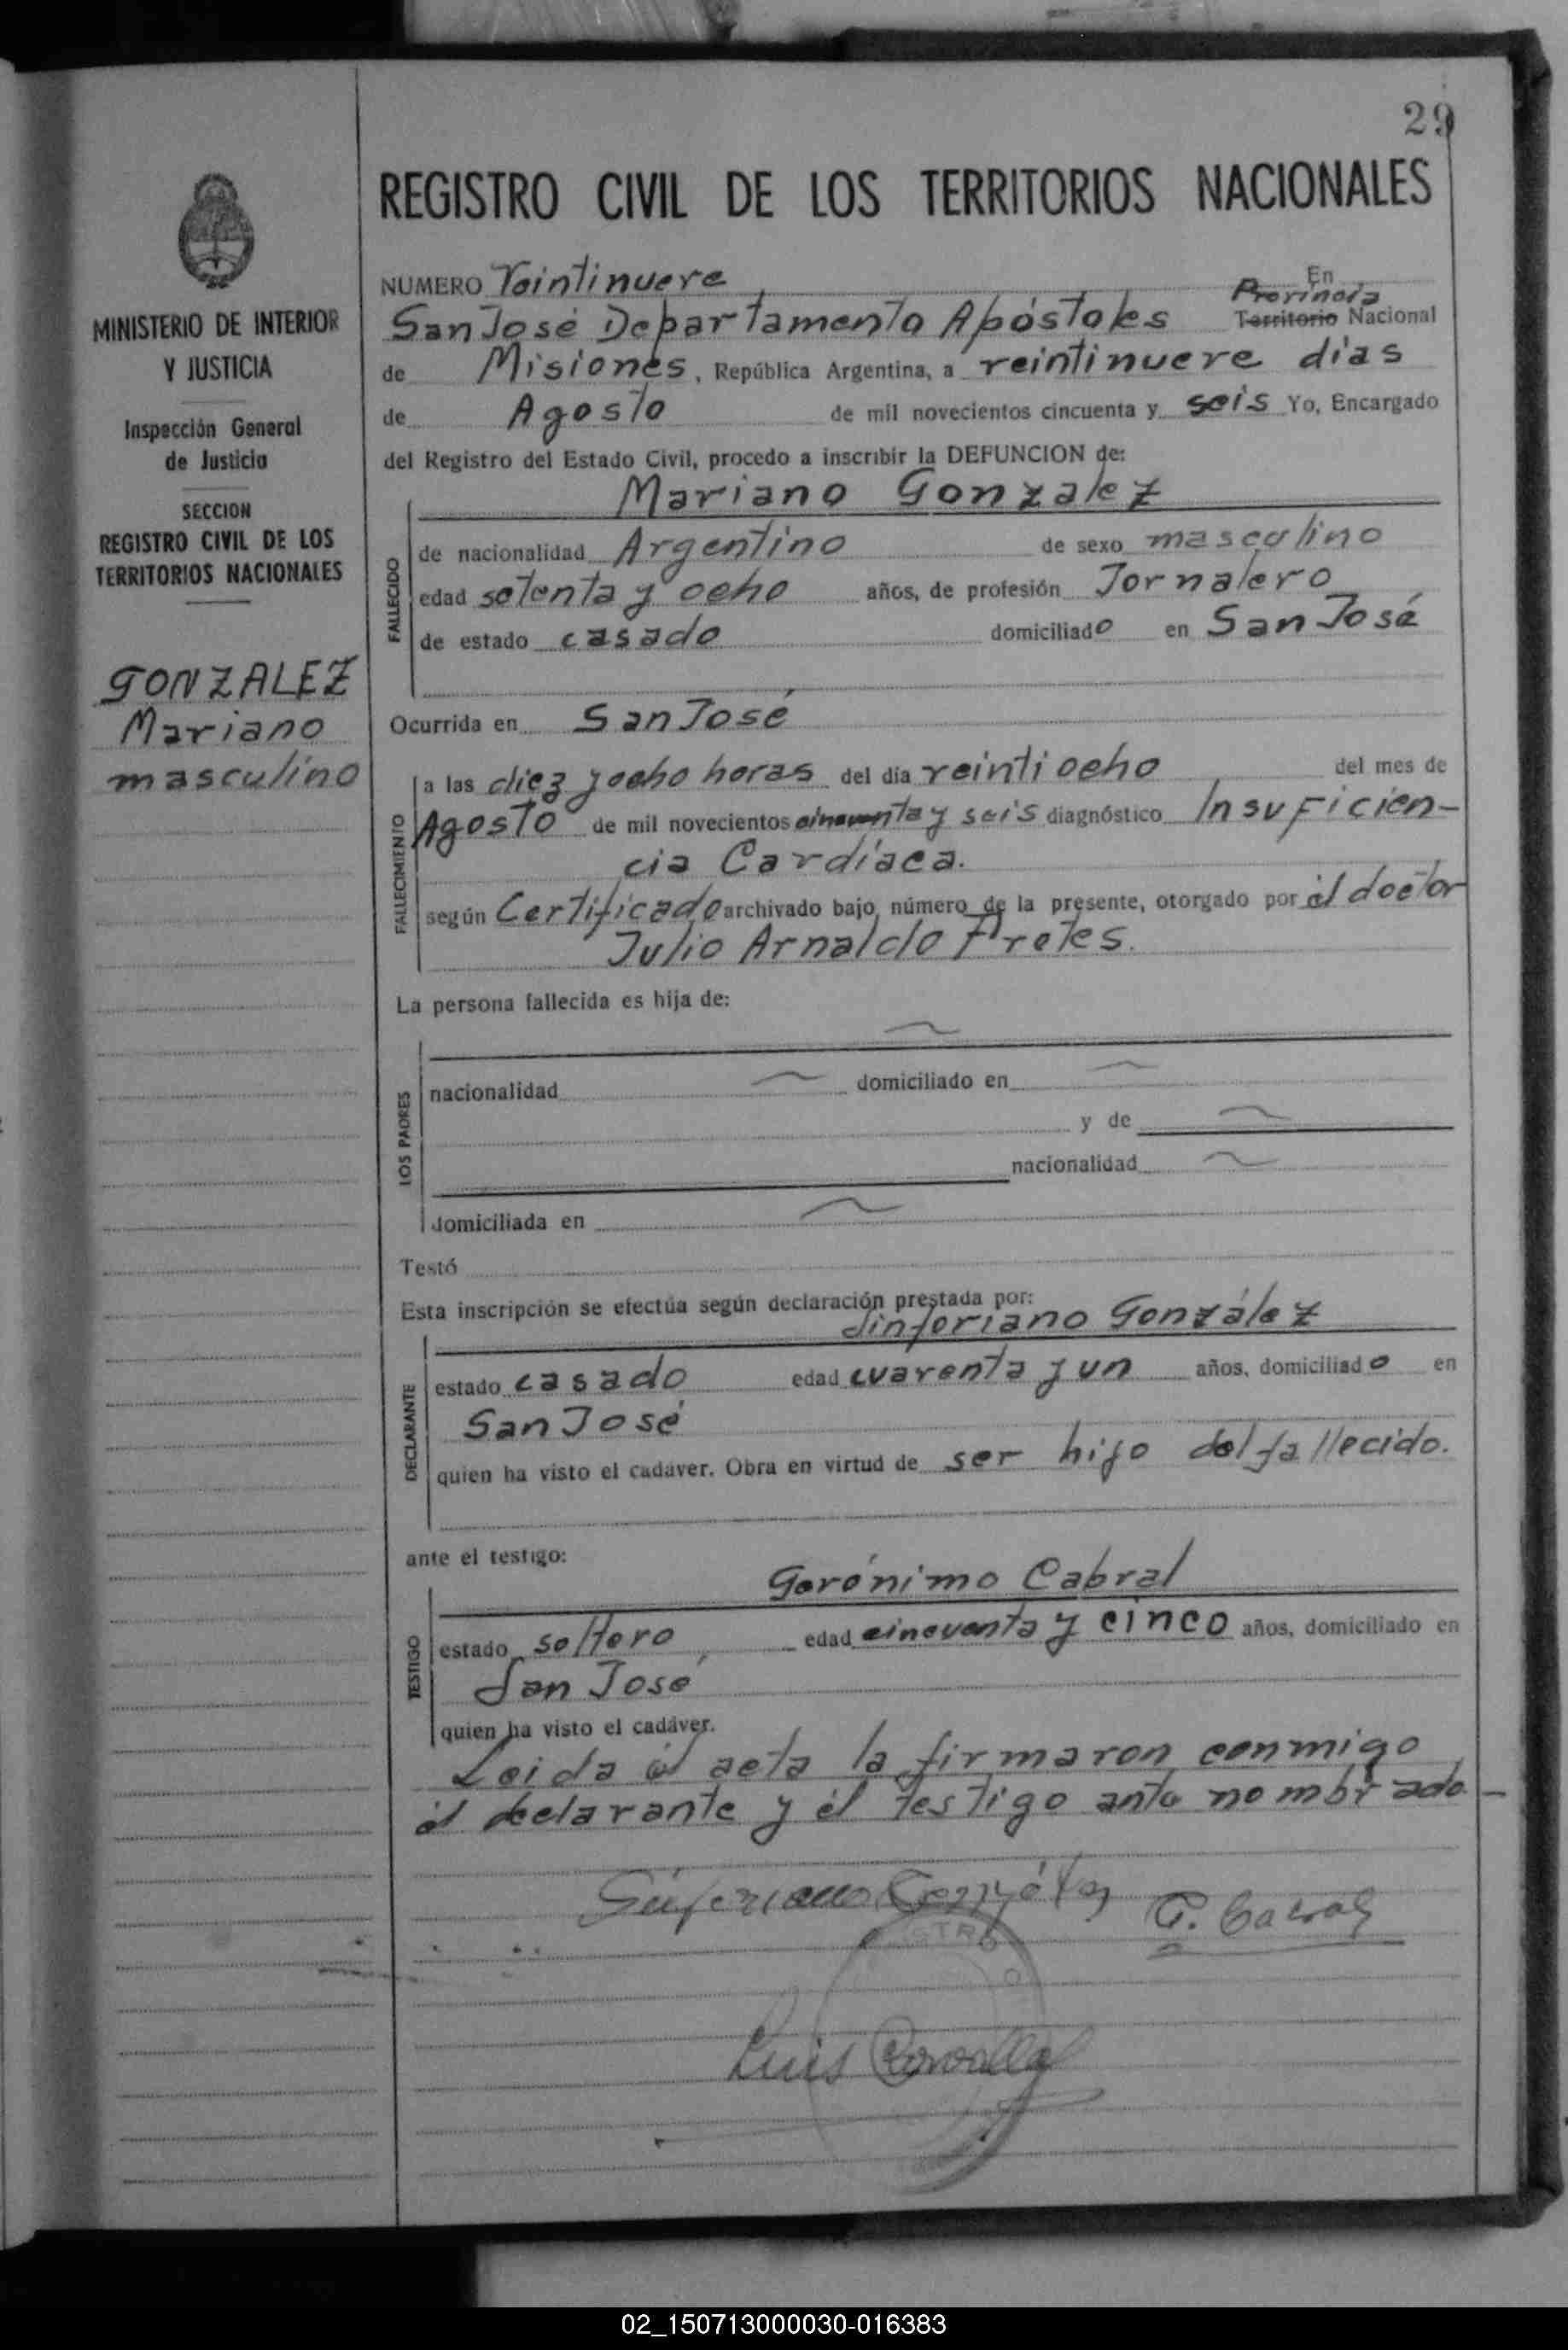 29
REGISTRO CIVIL DE LOS TERRITORIOS NACIONALES
MINISTERIO DE INTERIOR
Y JUSTICIA
Inspección General
de Justicia
SECCION
REGISTRO CIVIL DE LOS
TERRITORIOS NACIONALES
GONZALEZ
Mariano
masculino
NUMERO Veintinueve En
Provincia
San José Departamento Apóstoles Territorio Nacional
de Misiones, República Argentina, a veintinueve días
de Agosto de mil novecientos cincuenta y seis Yo, Encargado
del Registro del Estado Civil, procedo a inscribir la DEFUNCION de:
Mariano Gonzalez
FALLECIDO
de nacionalidad Argentino de sexo masculino
edad setenta y ocho años, de profesión Jornalero
de estado casado domiciliado en San José
Ocurrida en San José
FALLECIMIENTO
a las diez y ocho horas del día veintiocho del mes de
Agosto de mil novecientos cincuenta y seis diagnóstico Insuficien-
cia Cardíaca.
según Certificado archivado bajo número de la presente, otorgado por él doctor
Julio Arnaldo Fretes.
La persona fallecida es hija de:
LOS PADRES
nacionalidad domiciliado en
y de
nacionalidad
domiciliada en
Testó
Esta inscripción se efectúa según declaración prestada por:
Sinforiano González
DECLARANTE
estado casado edad cuarenta y un años, domiciliado en
San José
quien ha visto el cadáver. Obra en virtud de ser hijo del fallecido.
ante el testigo:
Gerónimo Cabral
TESTIGO
estado soltero, edad cincuenta y cinco años, domiciliado en
San José
quien ha visto el cadáver.
Leida él acta la firmaron conmigo
él declarante y él testigo ante nombrado.-
Sinforiano González G. Cabral
Luis
02_150713000030-016383